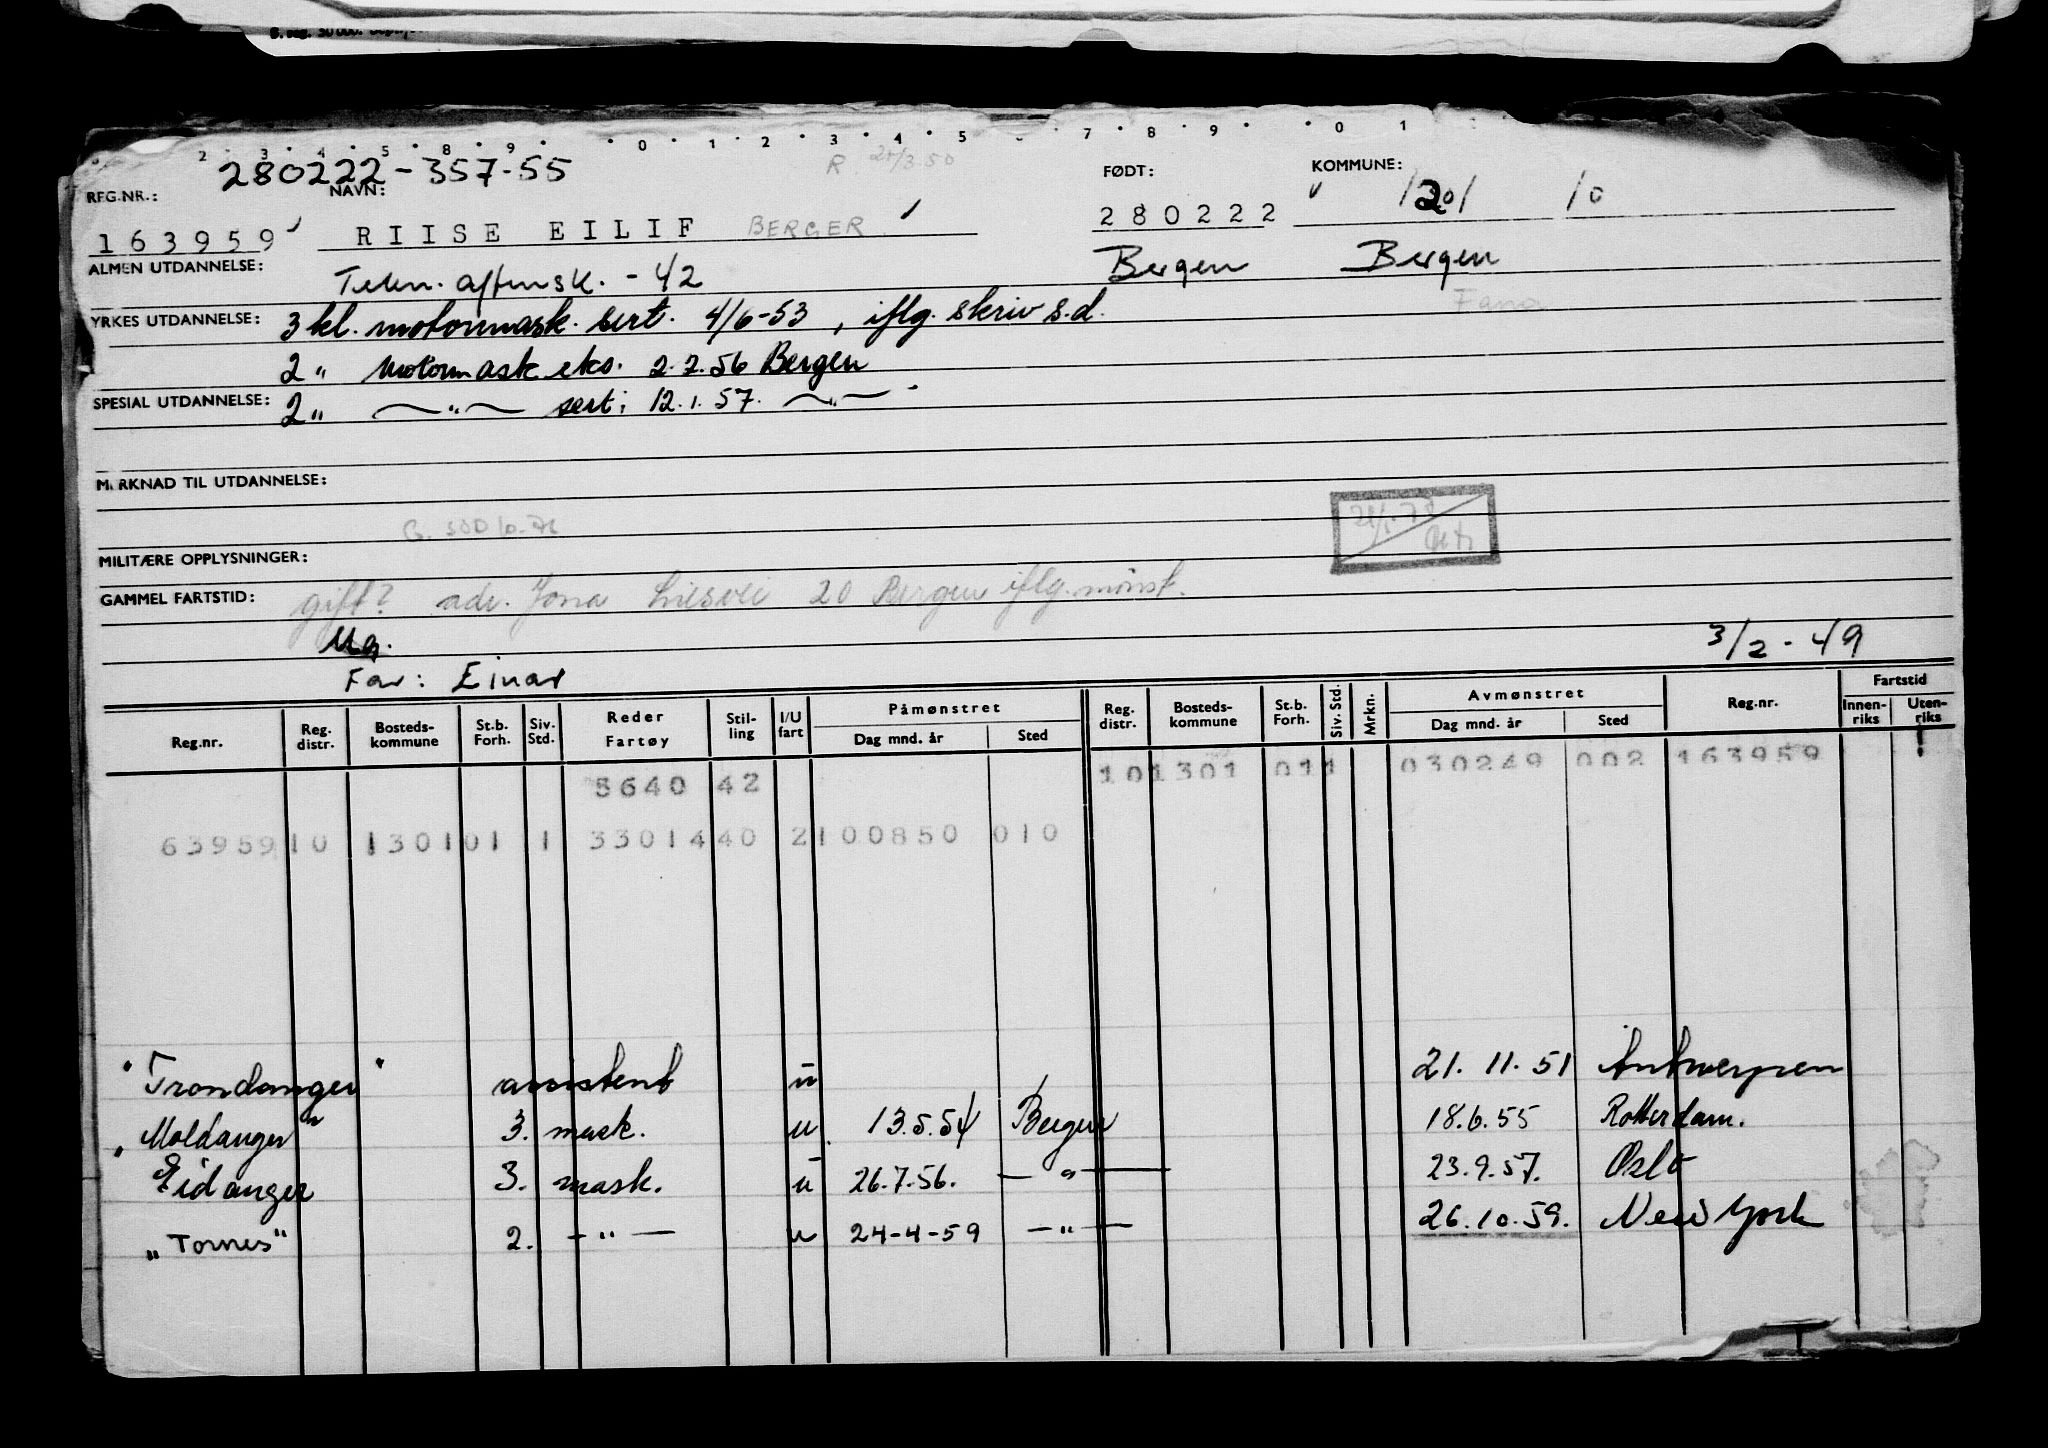 2 · 3 · 4 · 5 · 8 · 9 · · 0 · 1 · 2 · 3 · 4 · 5 · 7 · 8 · 9 · · 0 1
280222-357-55
REG.NR.: NAVN: FØDT: KOMMUNE:
163959 RIISE EILIF BERGER 280222 1201 10
ALMEN UTDANNELSE: Tekn. aftensk. - 42 Bergen Bergen
Fana
YRKES UTDANNELSE: 3 kl. motormask. sert. 4/6-53, iflg. skriv s.d.
2 " motormask eks. 2.2.56 Bergen
SPESIAL UTDANNELSE: 2 " —"— sert: 12.1.57. —"—
MERKNAD TIL UTDANNELSE:
MILITÆRE OPPLYSNINGER:
GAMMEL FARTSTID: gift? adr. Jona 20 Bergen iflg. mønst.
Ug. 3/2-49
Far: Einar
Reg.nr. Reg. distr. Bosteds-kommune St.b. Forh. Siv. Std. Reder Fartøy Stil-ling I/U fart Påmønstret Dag mnd. år Sted Reg. distr. Bosteds-kommune St.b. Forh. Siv. Std. Mrkn. Avmønstret Dag mnd. år Sted Reg.nr. Fartstid Innen-riks Uten-riks
5640 42 10 1301 01 1 030249 002 163959
63959 10 1301 01 1 33014 40 2 100850 010
"Trondanger" assistent u 21.11.51 Antwerpen
"Moldanger" 3. mask. u 13.5.54 Bergen 18.6.55 Rotterdam.
Eidanger 3. mask. u 26.7.56. —"— 23.9.57. Oslo
"Tornes" 2. —"— u 24-4-59 —"— 26.10.59. New York